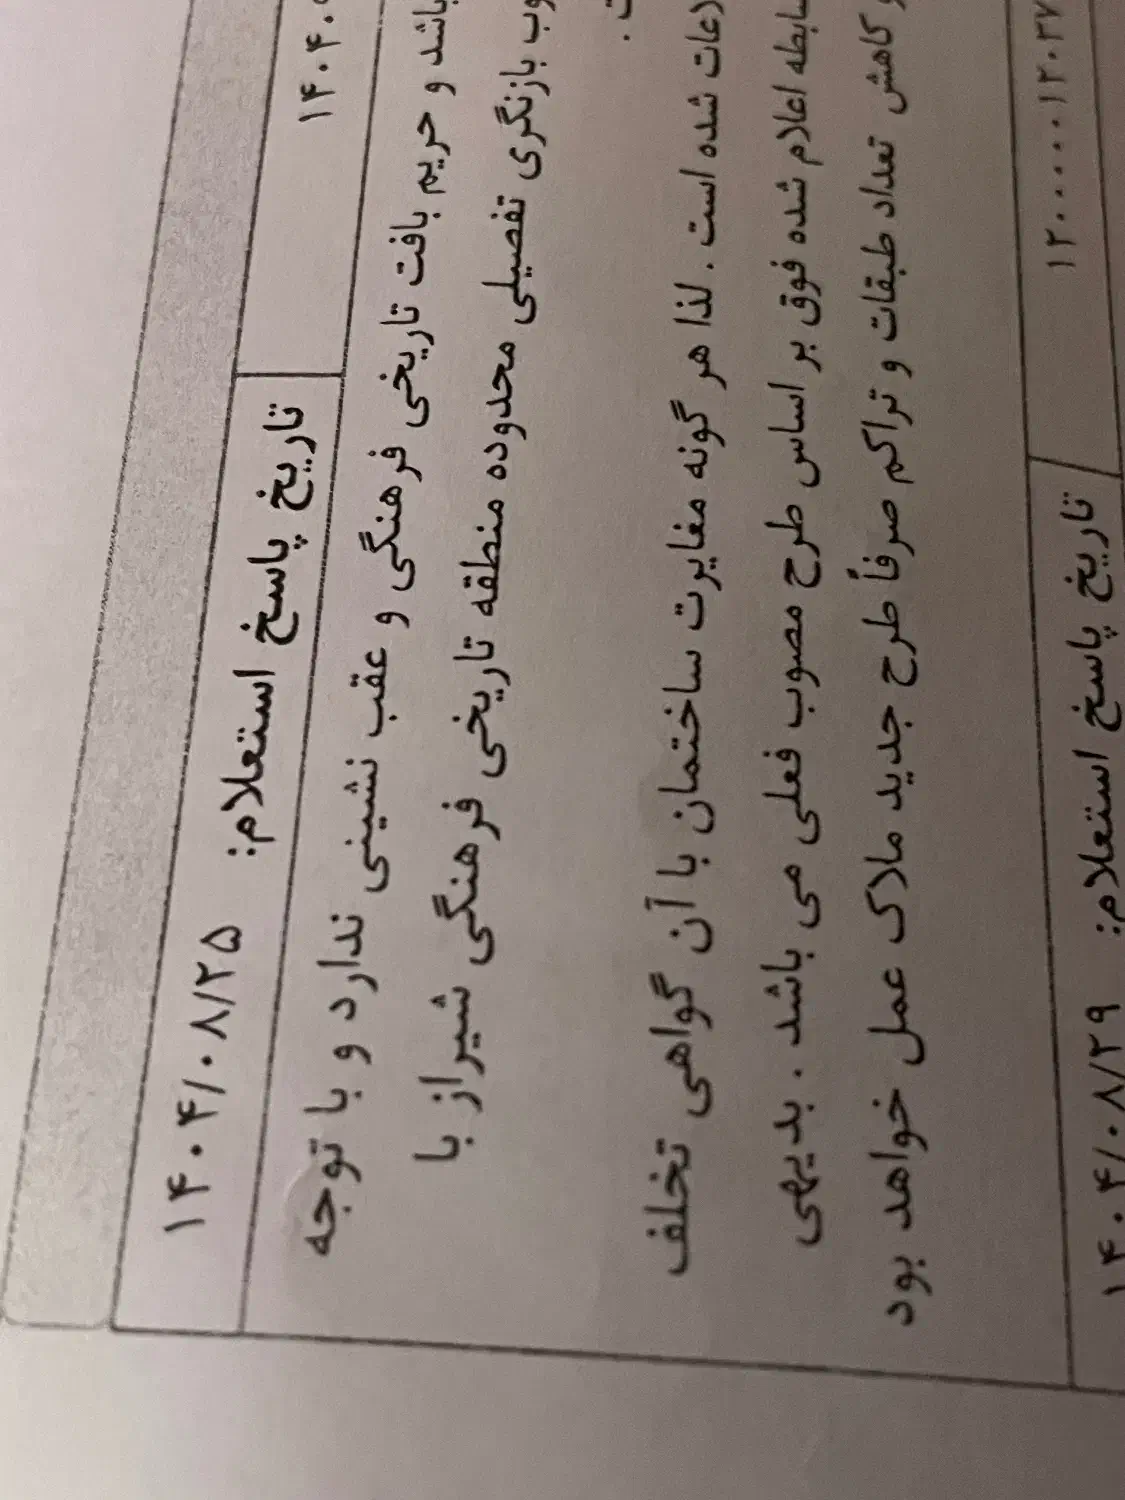 ۱۴۰۴۰ تاریخ پاسخ استعلام: ۱۴۰۴/۰۸/۲۵
باشد و حریم بافت تاریخی فرهنگی و عقب نشینی ندارد و با توجه
وب بازنگری تفصیلی محدوده منطقه تاریخی فرهنگی شیراز با
ت .
شده است . لذا هر گونه مغایرت ساختمان با آن گواهی تخلف
ضابطه اعلام شده فوق بر اساس طرح مصوب فعلی می باشد . بدیهی
و کاهش تعداد طبقات و تراکم صرفاً طرح جدید ملاک عمل خواهد بود
۱۲۰۰۰۰۱۲۰۳۷ تاریخ پاسخ استعلام: ۱۴۰۴/۰۸/۲۹